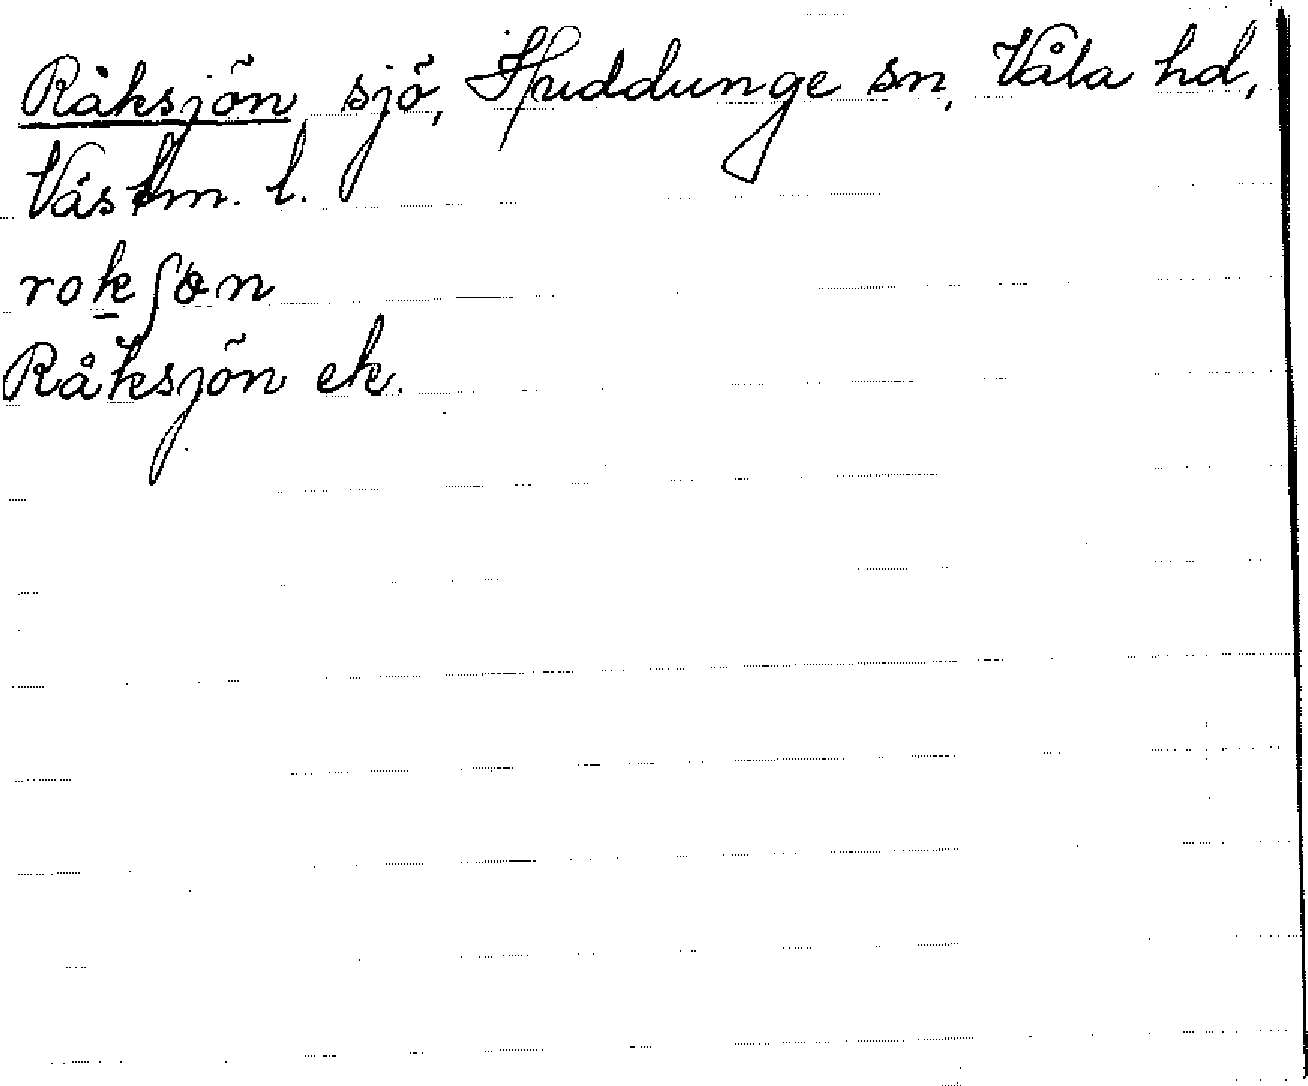 Råksjön sjö, Huddunge sn, Våla hd,
Västm. l.
rokʃɵn
Råksjön ek.